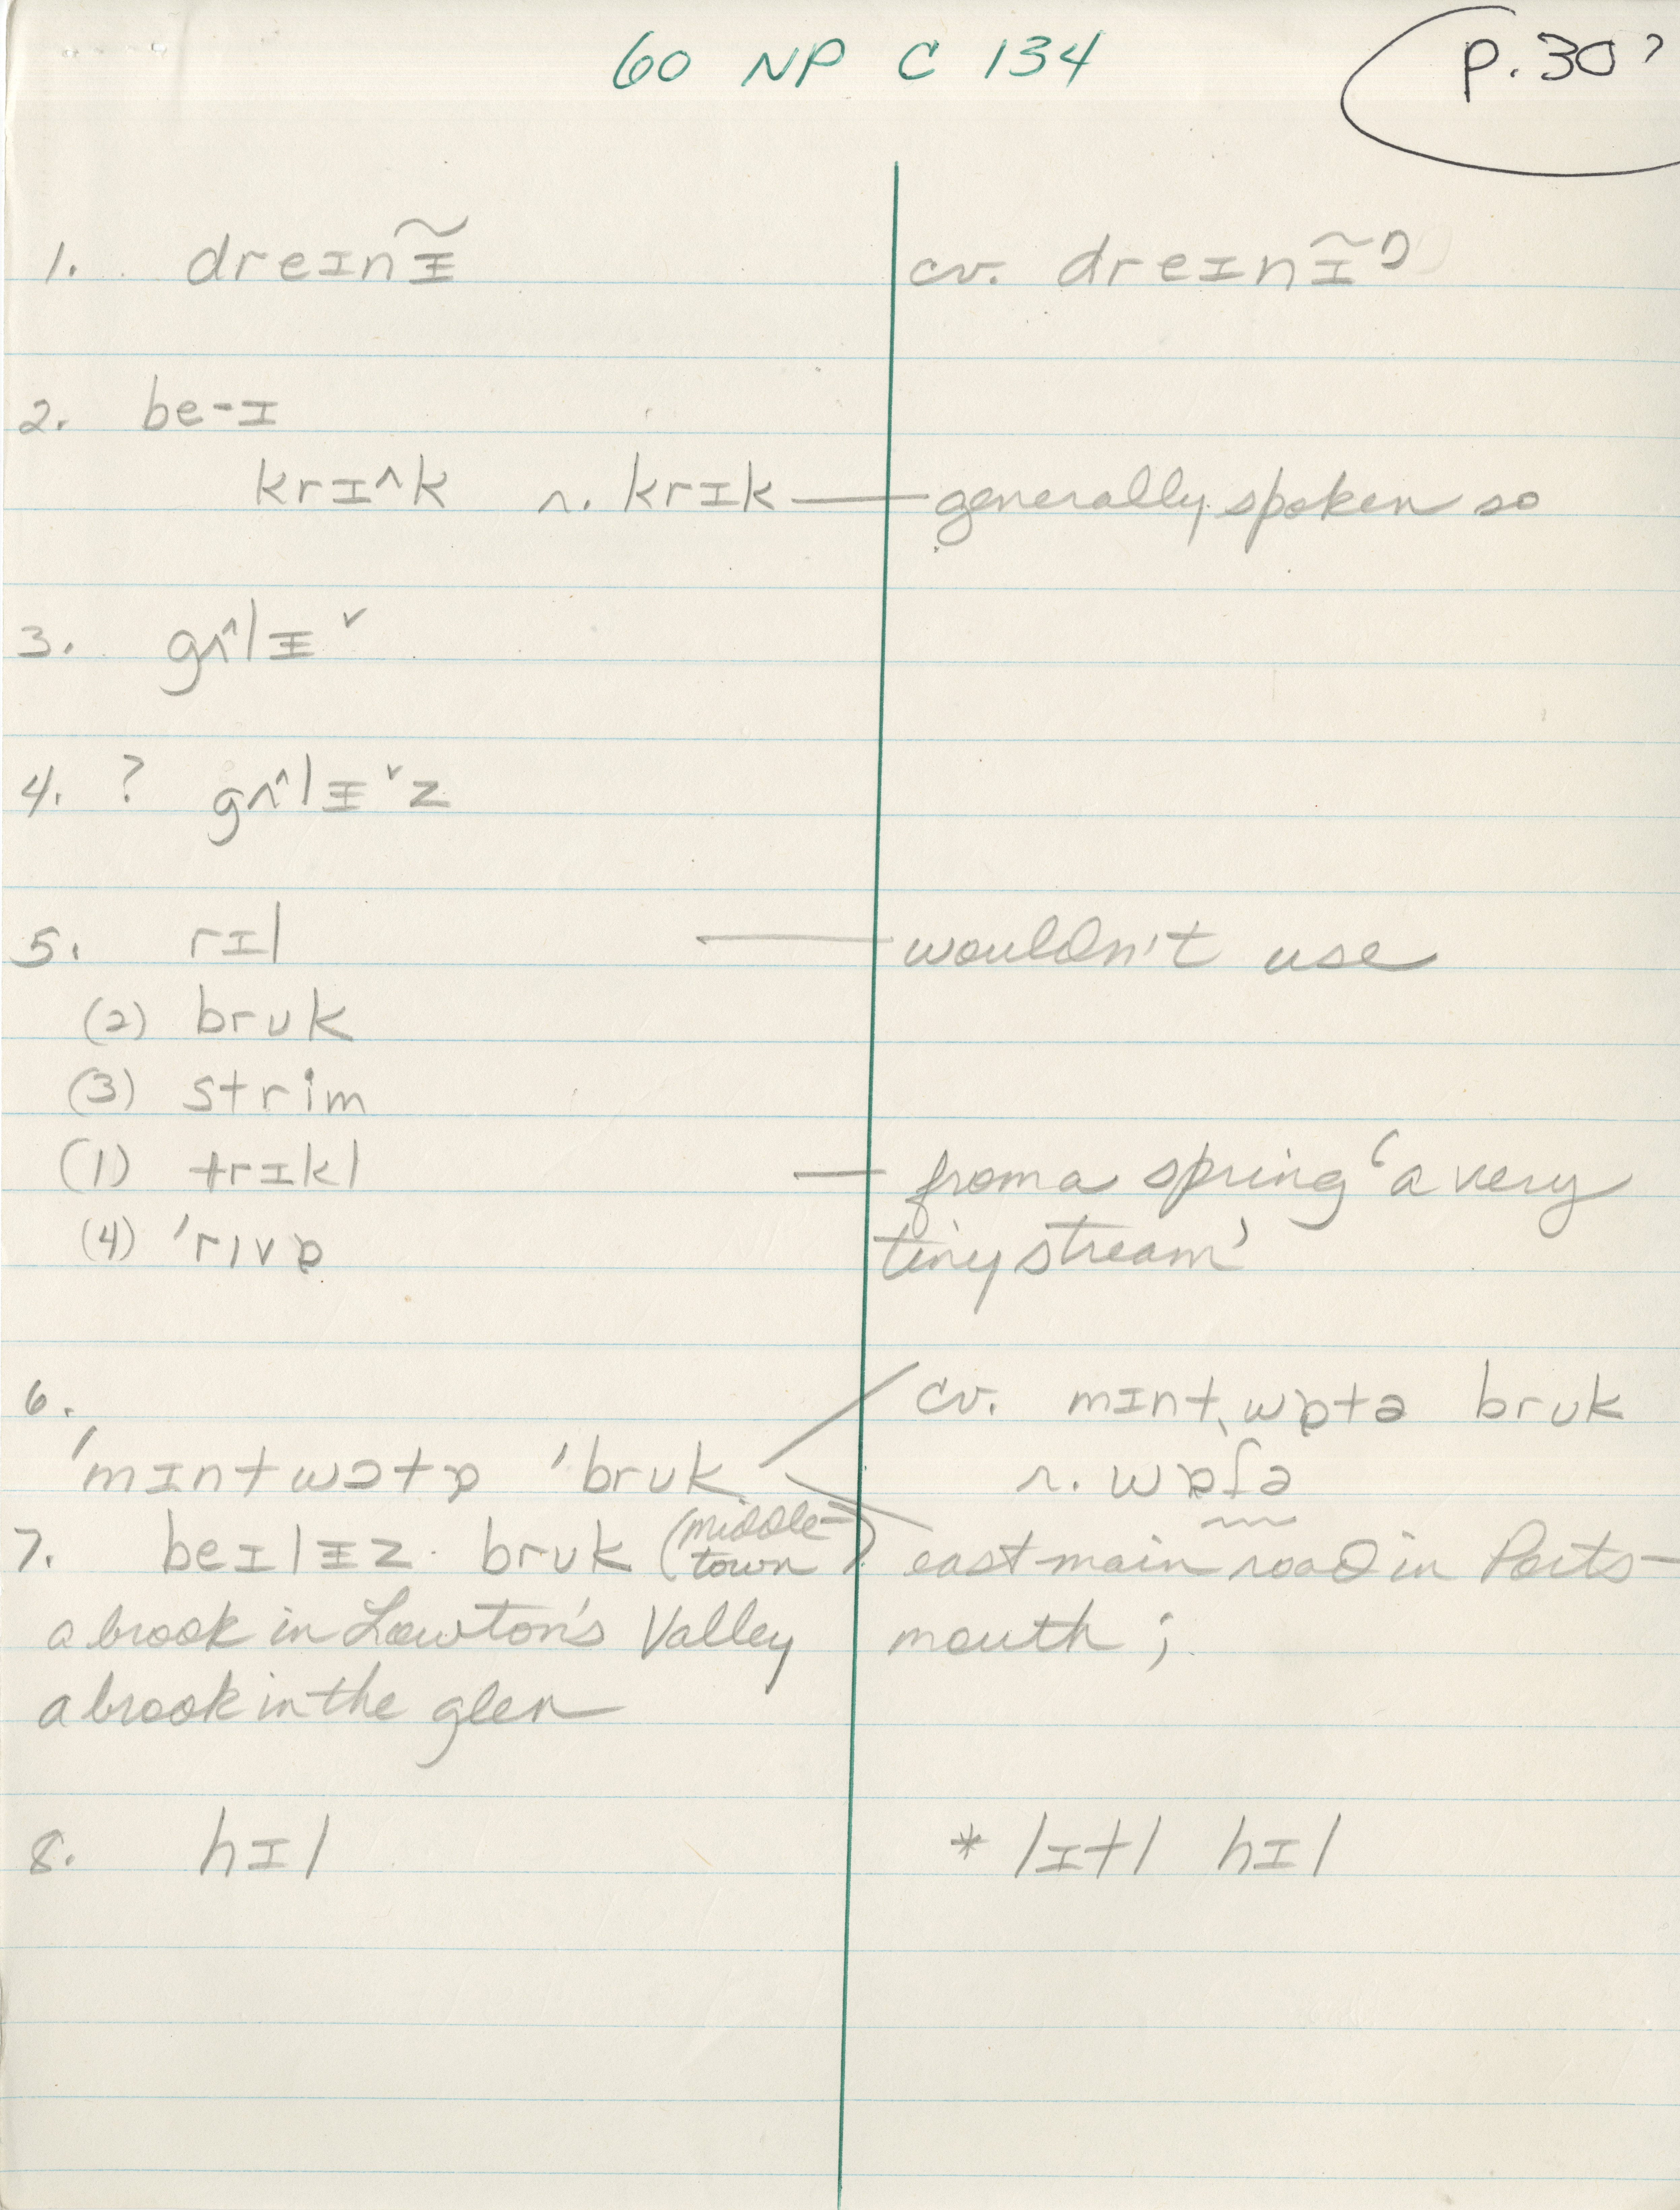 60 NP C 134
p. 30?
1. dreɪnɪ̵̃
cv. dreɪnɪ̃ʾ
2. be-ɪ
krɪ^k r. krɪk — generally spoken so
3. gʌ^lɪ̵ˇ
4. ? gʌ^lɪ̵ˇz
5. rɪl — wouldn't use
(2) brʊk
(3) strim
(1) trɪkl — from a spring ‘a very
(4) 'rɪvɒ tiny stream’
6. cv. mɪntˌwɒtə brʊk
'mɪntwɔtɒ 'brʊk r. wɒʃə
7. beɪlɪ̵z brʊk (middle-town) east main road in Ports-
a brook in Lawton's Valley mouth ;
a brook in the glen
8. hɪl * lɪtl hɪl